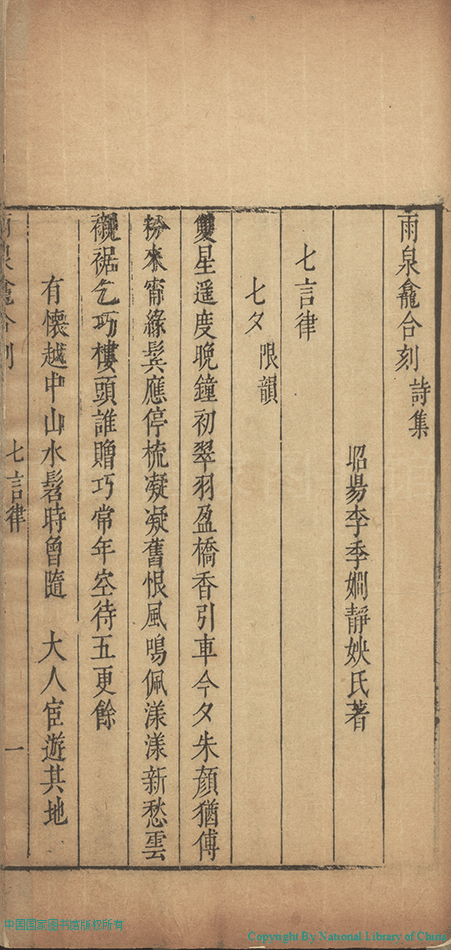 雨泉龕合刻 詩集
昭陽李季嫻靜姎氏著
七言律
七夕 限韻
雙星遥度晚鐘初翠羽盈橋香引車今夕朱顔猶傅
粉來宵緣鬓應停梳凝凝舊恨風鳴佩漾漾新愁雲
襯裾乞巧樓頭誰贈巧常年空待五更餘
有懷越中山水髫時曾隨 大人宦遊其地
雨泉龕合刻 七言律 一
中国国家图书馆版权所有
Copyright By National Library of China